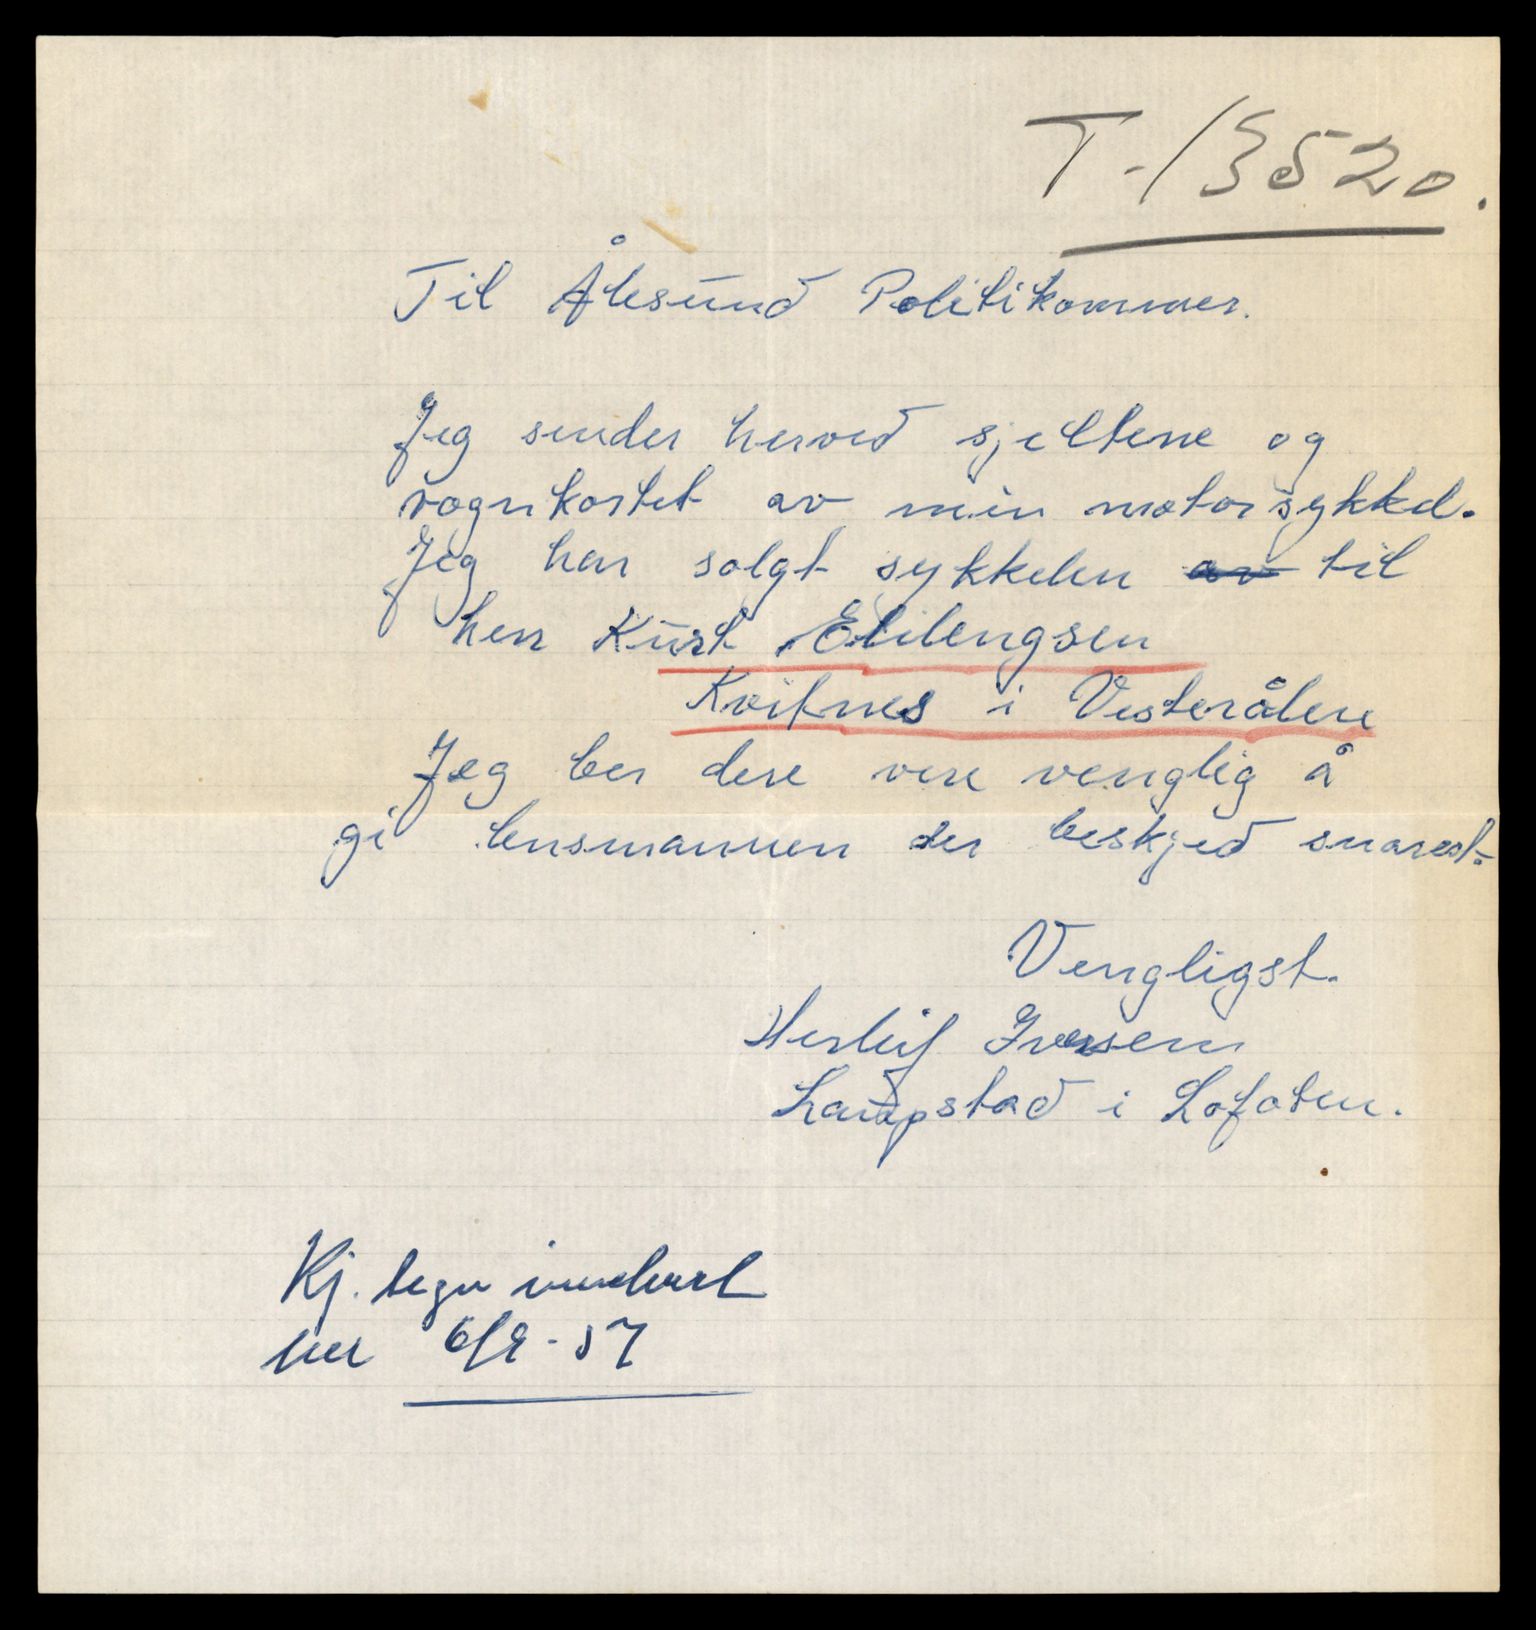 T-13520.
Til Ålesund Politikammer.
Jeg sender herved sjeltene og
vognkortet av min motorsykkel.
Jeg har solgt sykkelen av til
herr Kurt Ellengsen
Kviknes i Vesterålen
Jeg ber dere vere venglig å
gi lensmannen der beskjed snarest.
Vengligst.
Herleif Iversen
i Lofoten.
Kj. tegn innlevert
her 6/9-57